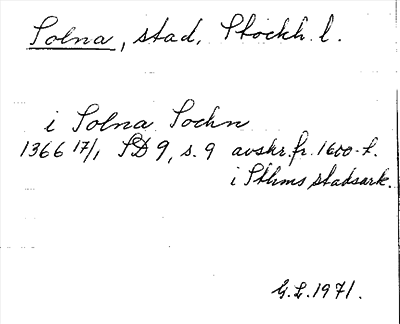 Solna, stad, Stockh. l.
i Solna Sochn
1366 17/1, SD 9, s. 9 avskr. fr. 1600-t.
i Sthms stadsark.
G.L. 1971.